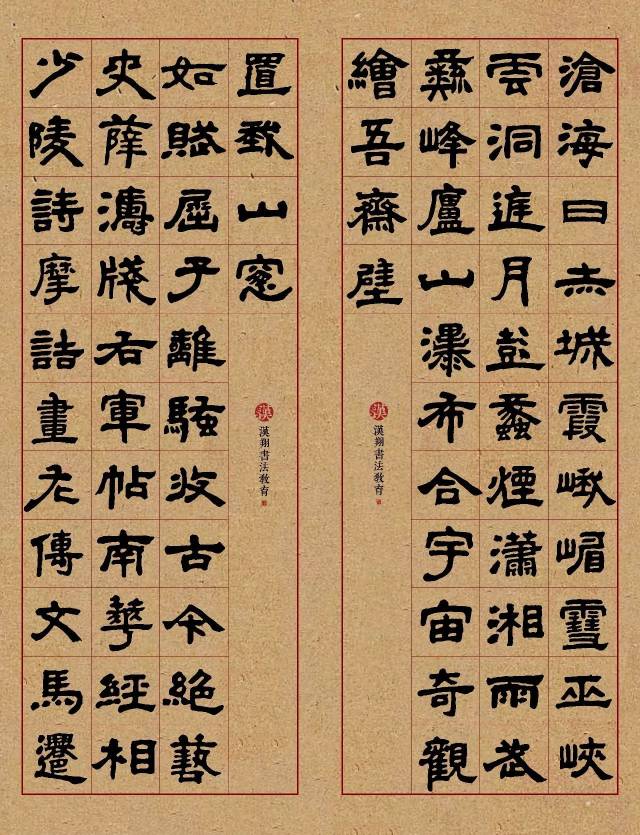 滄海日赤城霞峨嵋雪巫峽
雲洞庭月彭蠡煙瀟湘雨武
彝峰廬山瀑布合宇宙奇觀
繪吾齋壁
漢
漢翔書法教育
少陵詩摩詰畫左傳文馬遷
史薛濤牋右軍帖南華經相
如賦屈子離騷收古今絕藝
置我山窗
漢
漢翔書法教育